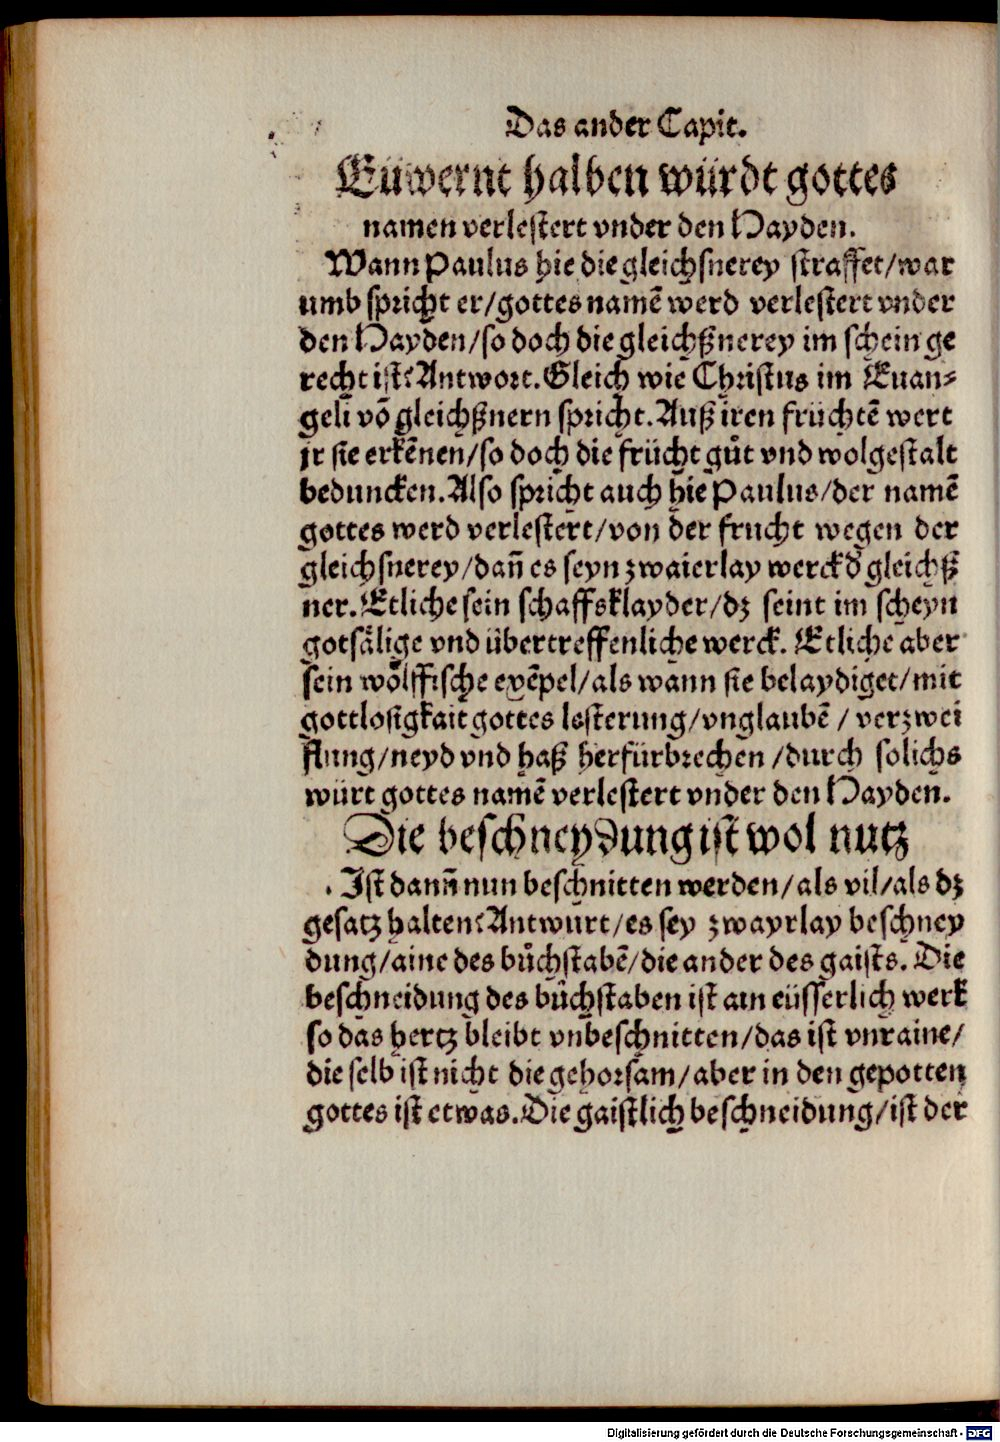 Das ander Capit.
Eüwernt halben würdt gottes
namen verlestert vnder den Hayden.
Wann Paulus hie die gleichsnerey straffet/war
umb spricht er/gottes namẽ werd verlestert vnder
den Hayden/so doch die gleichßnerey im schein ge
recht ist? Antwort. Gleich wie Christus im Euan⸗
geli võ gleichßnern spricht. Auß iren früchtẽ wert
jr sie erkẽnen/so doch die frücht gůt vnd wolgestalt
beduncken. Also spricht auch hie Paulus/der namẽ
gottes werd verlestert/von der frucht wegen der
gleichsnerey/dañ es seyn zwaierlay werck d̕ gleichß
ner. Etliche sein schaffsklayder/dz seint im scheyn
gotsälige vnd übertreffenliche werck. Etliche aber
sein wölffische exẽpel/als wann sie belaydiget/mit
gottlosigkait gottes lesterung/vnglaubẽ / verzwei
flung/neyd vnd haß herfürbrechen /durch solichs
würt gottes namẽ verlestert vnder den Hayden.
Die beschneydung ist wol nutz
Ist dann̄ nun beschnitten werden/als vil/als dz
gesatz halten? Antwurt/es sey zwayrlay beschney
dung/aine des bůchstabẽ/die ander des gaists. Die
beschneidung des bůchstaben ist ain eüsserlich werk
so das hertz bleibt vnbeschnitten/das ist vnraine/
die selb ist nicht die gehorsam/aber in den gepotten
gottes ist etwas. Die gaistlich beschneidung/ist der
Digitalisierung gefördert durch die Deutsche Forschungsgemeinschaft - DFG